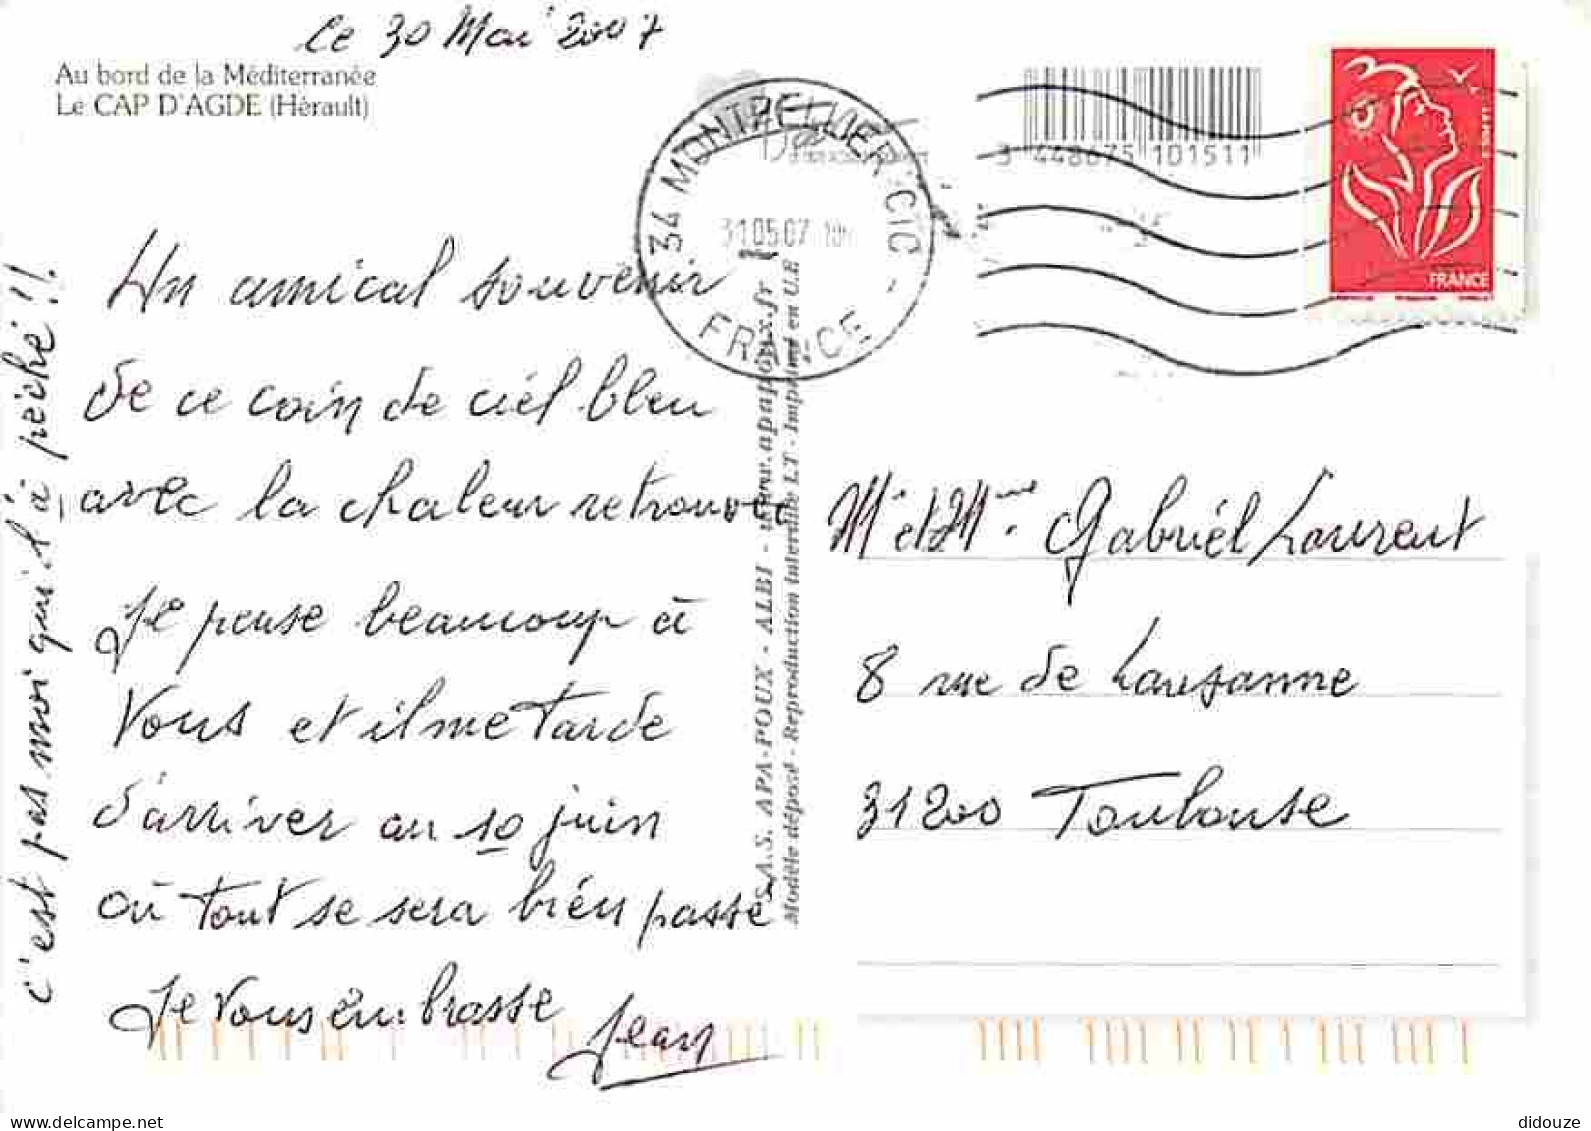 Le 30 Mai 2007
Au bord de la Méditerranée
Le CAP D'AGDE (Hérault)
34 MONTPELLIER CIC -
31.05.07
FRANCE
3 448675 101511
FRANCE
Un amical souvenir
de ce coin de ciel bleu
avec la chaleur retrouvée
Je pense beaucoup à
Vous et il me tarde
d'arriver au 10 juin
où tout se sera bien passé
Je Vous embrasse
Jean
c'est pas moi qui l'a pêché !!
S.A.S. APA-POUX - ALBI - www.apapoux.fr
Modèle déposé - Reproduction interdite LT - Imprimé en U.E
Mr et Mme Gabriel Laurent
8 rue de Lausanne
31200 Toulouse
www.delcampe.net
didouze